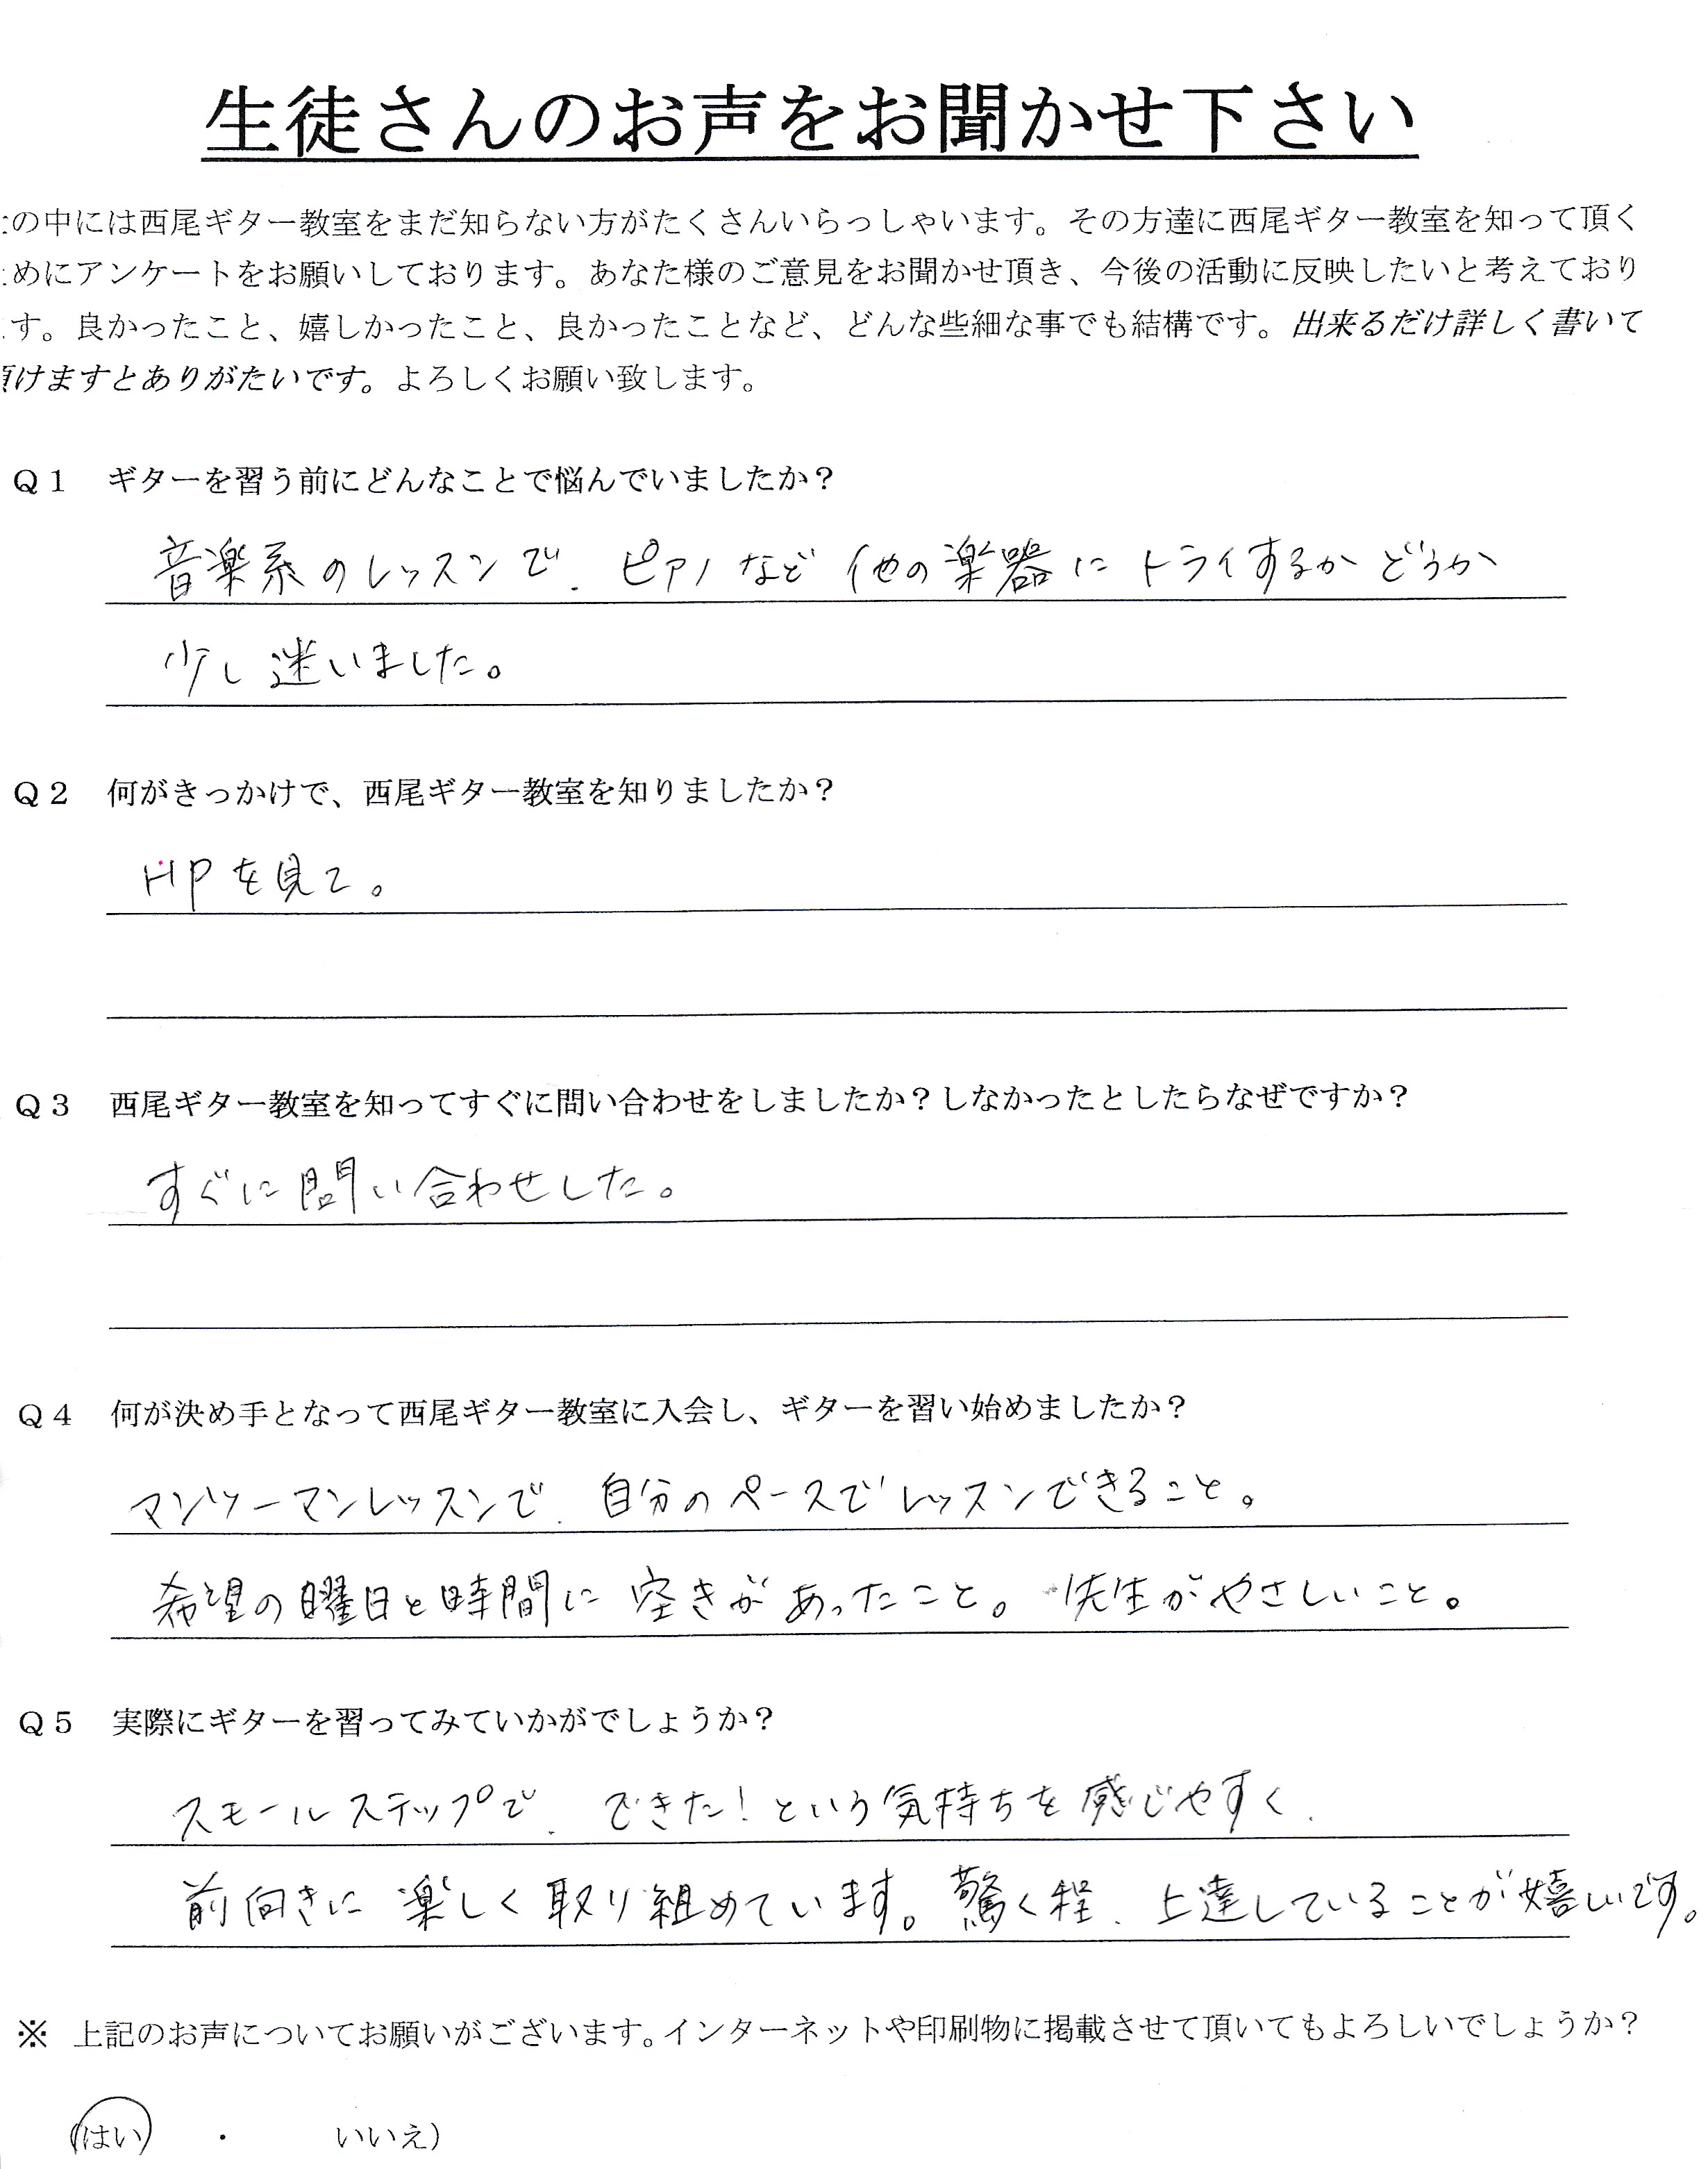 生徒さんのお声をお聞かせ下さい
の中には西尾ギター教室をまだ知らない方がたくさんいらっしゃいます。その方達に西尾ギター教室を知って頂く
めにアンケートをお願いしております。あなた様のご意見をお聞かせ頂き、今後の活動に反映したいと考えており
す。良かったこと、嬉しかったこと、良かったことなど、どんな些細な事でも結構です。出来るだけ詳しく書いて
頂けますとありがたいです。よろしくお願い致します。
Q1 ギターを習う前にどんなことで悩んでいましたか？
音楽系のレッスンで、ピアノなど他の楽器にトライするかどうか
少し迷いました。
Q2 何がきっかけで、西尾ギター教室を知りましたか？
HPを見て。
Q3 西尾ギター教室を知ってすぐに問い合わせをしましたか？しなかったとしたらなぜですか？
すぐに問い合わせした。
Q4 何が決め手となって西尾ギター教室に入会し、ギターを習い始めましたか？
マンツーマンレッスンで、自分のペースでレッスンできること。
希望の曜日と時間に空きがあったこと。先生がやさしいこと。
Q5 実際にギターを習ってみていかがでしょうか？
スモールステップで、できた！という気持ちを感じやすく、
前向きに楽しく取り組めています。驚く程、上達していることが嬉しいです。
※ 上記のお声についてお願いがございます。インターネットや印刷物に掲載させて頂いてもよろしいでしょうか？
(はい ・ いいえ)